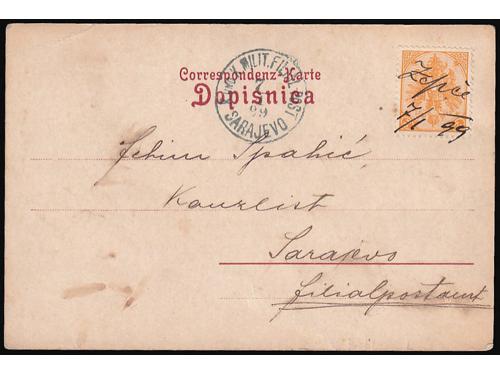 Correspondenz-Karte
Dopisnica
MILIT. FILIAL POST
7
99
SARAJEVO
Žepče
7/1 99
Spahić,
Kanzlist
Sarajevo
filialpostamt